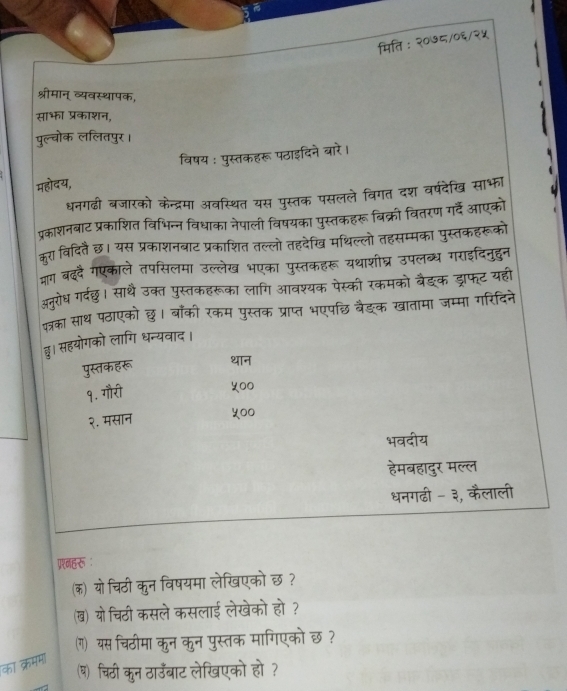 मिति : २०७८/०६/२५
श्रीमान् व्यवस्थापक,
साझा प्रकाशन,
पुल्चोक ललितपुर ।
विषय : पुस्तकहरू पठाइदिने बारे ।
महोदय,
धनगढी बजारको केन्द्रमा अवस्थित यस पुस्तक पसलले विगत दश वर्षदेखि साझा
प्रकाशनबाट प्रकाशित विभिन्न विधाका नेपाली विषयका पुस्तकहरू बिक्री वितरण गर्दै आएको
कुरा विदितै छ । यस प्रकाशनबाट प्रकाशित तल्लो तहदेखि मथिल्लो तहसम्मका पुस्तकहरूको
माग बढ्दै गएकाले तपसिलमा उल्लेख भएका पुस्तकहरू यथाशीघ्र उपलब्ध गराइदिनुहुन
अनुरोध गर्दछु । साथै उक्त पुस्तकहरूका लागि आवश्यक पेस्की रकमको बैङ्क ड्राफ्ट यही
पत्रका साथ पठाएको छु । बाँकी रकम पुस्तक प्राप्त भएपछि बैङ्क खातामा जम्मा गरिदिने
छु । सहयोगको लागि धन्यवाद ।
पुस्तकहरू थान
१. गौरी ५००
२. मसान ५००
भवदीय
हेमबहादुर मल्ल
धनगढी – ३, कैलाली
प्रश्नहरू :
(क) यो चिठी कुन विषयमा लेखिएको छ ?
(ख) यो चिठी कसले कसलाई लेखेको हो ?
(ग) यस चिठीमा कुन कुन पुस्तक मागिएको छ ?
(घ) चिठी कुन ठाउँबाट लेखिएको हो ?
का क्रममा